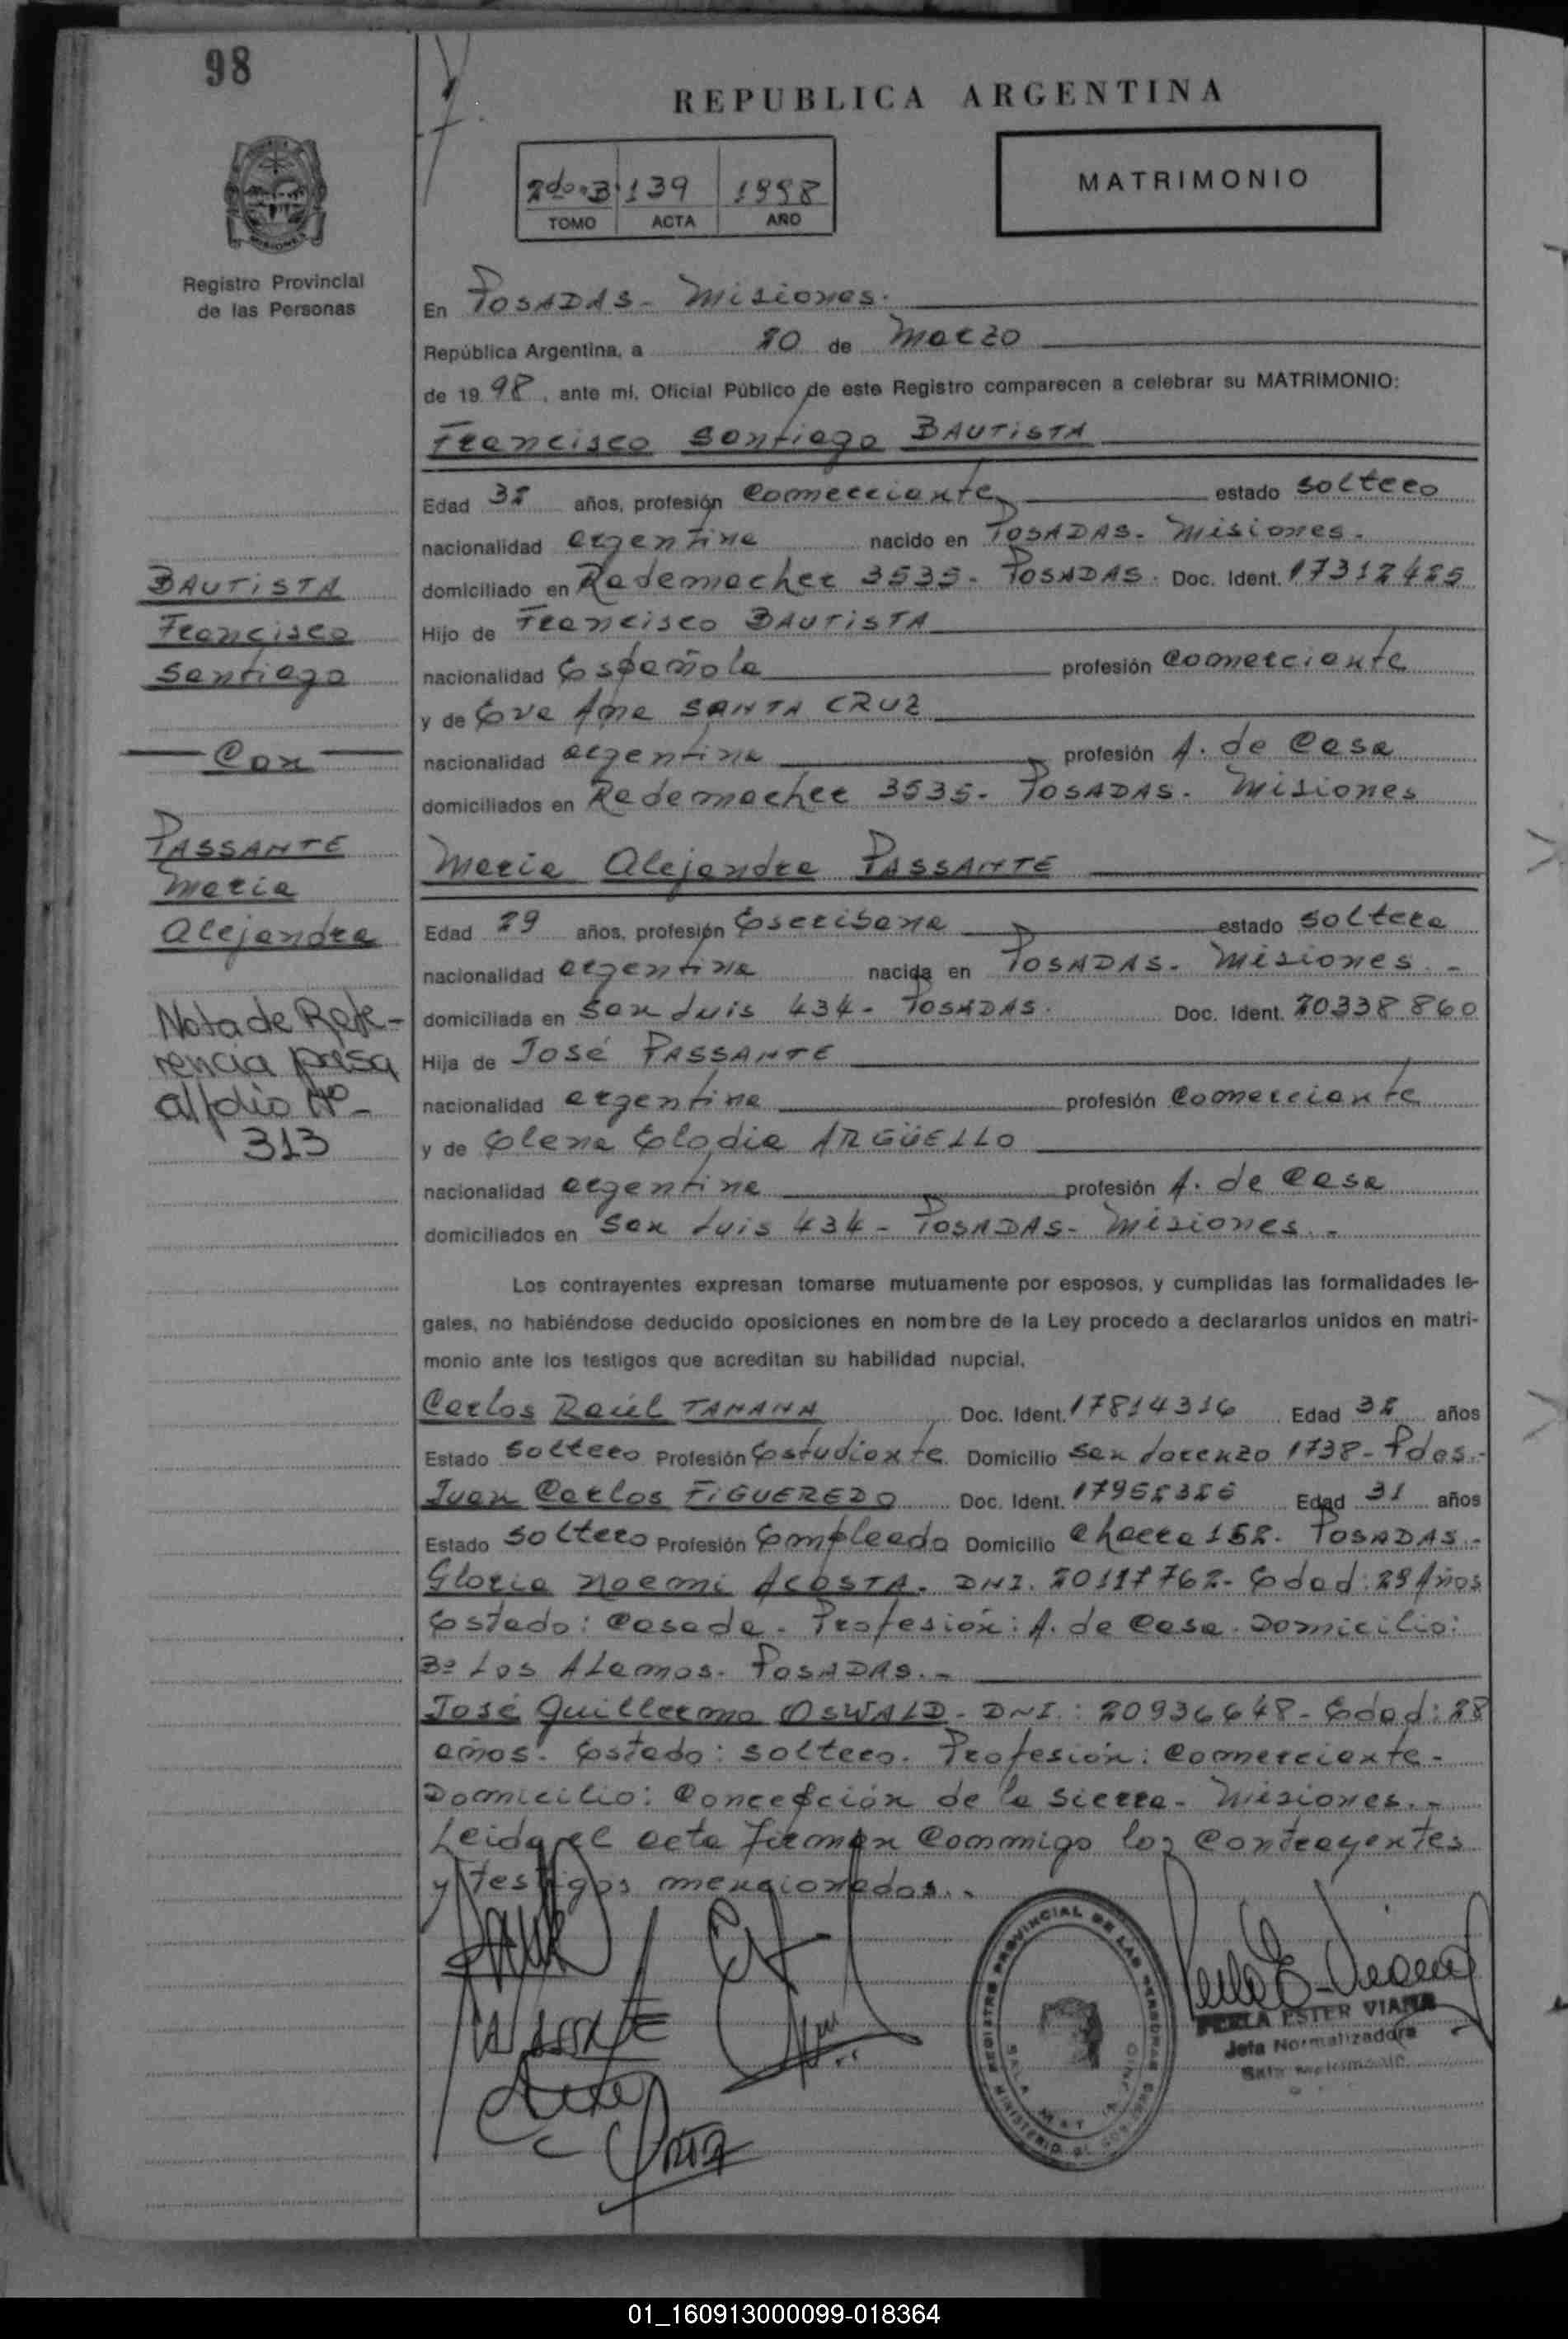 98
REPUBLICA ARGENTINA
2do "B" 139 1998
TOMO ACTA AÑO
MATRIMONIO
Registro Provincial
de las Personas
En POSADAS - Misiones.
República Argentina, a 20 de Marzo
de 1998, ante mí, Oficial Público de este Registro comparecen a celebrar su MATRIMONIO:
Francisco Santiago BAUTISTA
Edad 32 años, profesión Comerciante estado Soltero
nacionalidad argentina nacido en POSADAS - Misiones.
domiciliado en Rademacher 3535 - POSADAS. Doc. Ident. 17312425
Hijo de Francisco BAUTISTA
nacionalidad Española profesión Comerciante
y de Eva Ana SANTA CRUZ
nacionalidad argentina profesión A. de Casa
domiciliados en Rademacher 3535 - POSADAS. Misiones
María Alejandra PASSANTE
Edad 29 años, profesión Escribana estado Soltera
nacionalidad argentina nacida en POSADAS - Misiones. -
domiciliada en San Luis 434 - POSADAS. Doc. Ident. 20338860
Hija de José PASSANTE
nacionalidad argentina profesión Comerciante
y de Elena Elodia ARGÜELLO
nacionalidad argentina profesión A. de Casa
domiciliados en San Luis 434 - POSADAS - Misiones. -
BAUTISTA
Francisco
Santiago
Con
PASSANTE
María
Alejandra
Nota de Refe-
rencia pasa
al folio Nº
313
Los contrayentes expresan tomarse mutuamente por esposos, y cumplidas las formalidades le-
gales, no habiéndose deducido oposiciones en nombre de la Ley procedo a declararlos unidos en matri-
monio ante los testigos que acreditan su habilidad nupcial,
Carlos Raúl TAMAÑA Doc. Ident. 17814316 Edad 32 años
Estado Soltero Profesión Estudiante Domicilio San Lorenzo 1738 - Pdas. -
Juan Carlos FIGUEREDO Doc. Ident. Edad 31 años
Estado Soltero Profesión Empleado Domicilio Chacra 152. POSADAS. -
Gloria Noemí ACOSTA. DNI. 20117762 - Edad: 29 Años
Estado: Casada. Profesión: A. de Casa. Domicilio:
Bº Los Alamos. POSADAS. -
José Guillermo OSWALD - DNI.: 20936648 - Edad: 28
años. Estado: Soltero. Profesión: Comerciante -
Domicilio: Concepción de la Sierra - Misiones. -
Leida el acta firman Conmigo los Contrayentes
y testigos mencionados. -
REGISTRO PROVINCIAL DE LAS PERSONAS
PERLA ESTER VIANA
Jefa Normalizadora
Sala Matrimonio
01_160913000099-018364